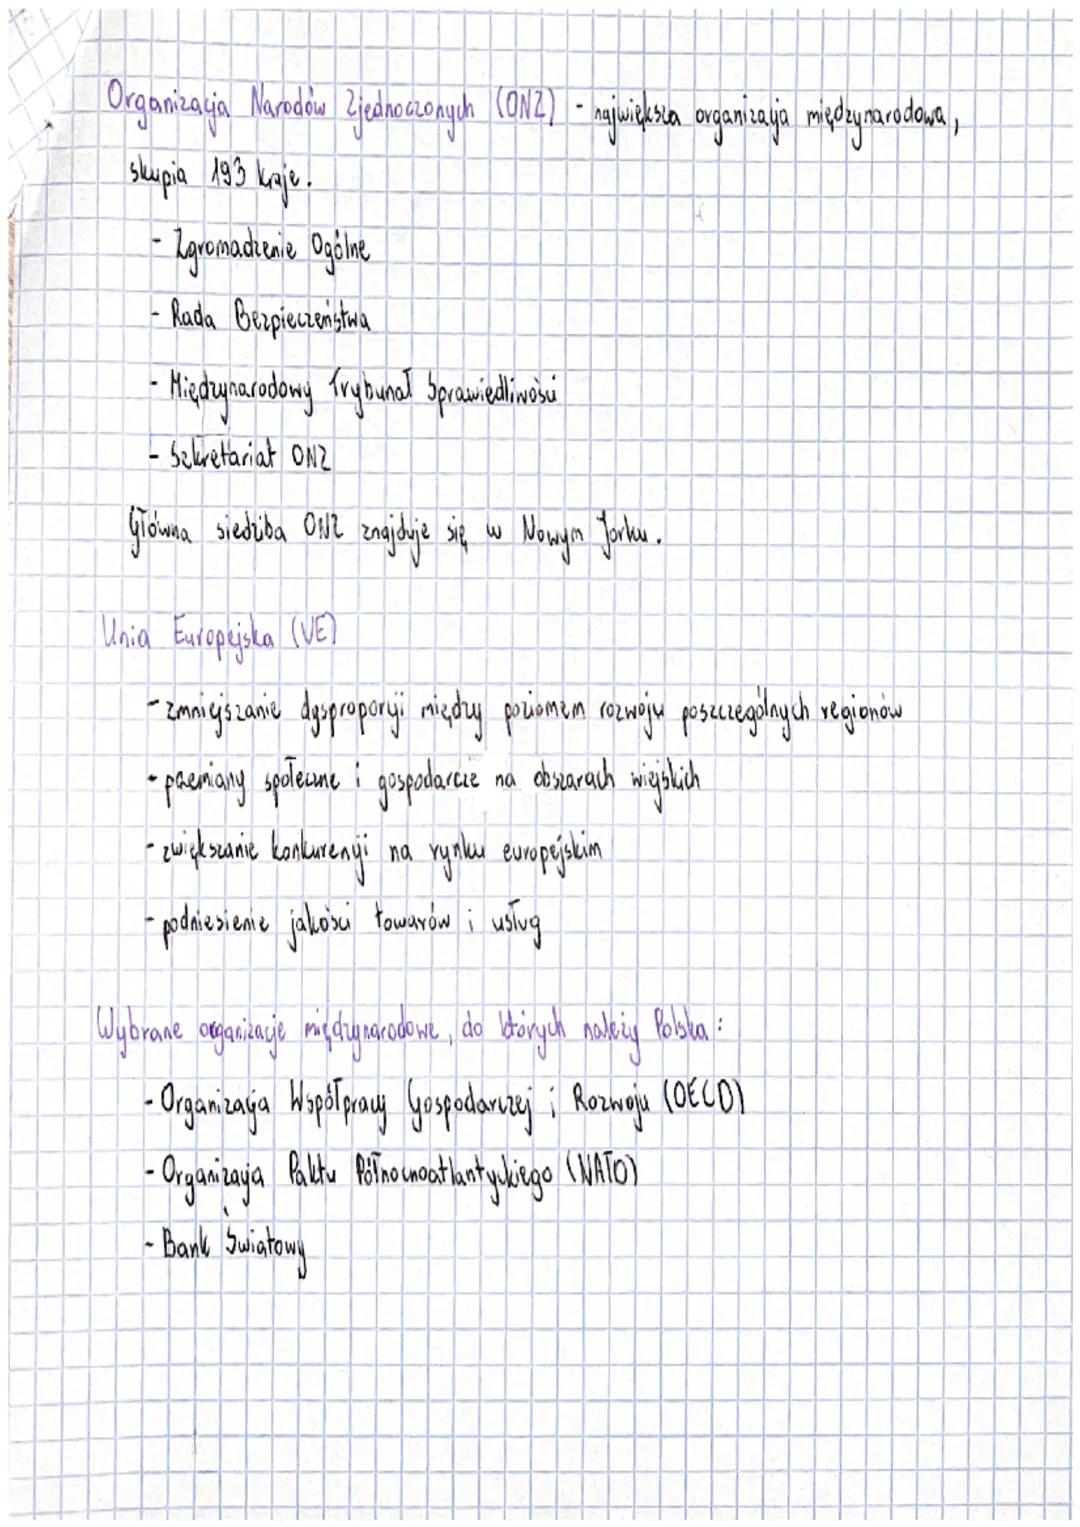 Organizacja Narodów Zjednoczonych (ONZ) - największa organizacja międzynarodowa,
skupia 193 kraje.
- Zgromadzenie Ogólne
- Rada Bezpieczeństwa
- Międzynarodowy Trybunał Sprawiedliwości
- Sekretariat ONZ
Główna siedziba ONZ znajduje się w Nowym Jorku.
Unia Europejska (UE)
- zmniejszanie dysproporcji między poziomem rozwoju poszczególnych regionów
- przemiany społeczne i gospodarcze na obszarach wiejskich
- zwiększanie konkurencji na rynku europejskim
- podniesienie jakości towarów i usług
Wybrane organizacje międzynarodowe, do których należy Polska:
- Organizacja Współpracy Gospodarczej i Rozwoju (OECD)
- Organizacja Paktu Północnoatlantyckiego (NATO)
- Bank Światowy